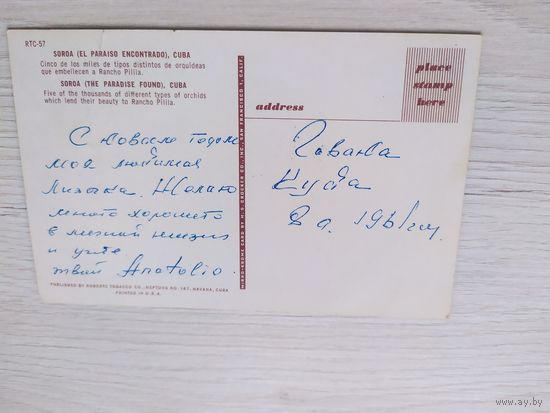 RTC-57
SOROA (EL PARAISO ENCONTRADO), CUBA
Cinco de los miles de tipos distintos de orquídeas
que embellecen a Rancho Pilila.
SOROA (THE PARADISE FOUND), CUBA
Five of the thousands of different types of orchids
which lend their beauty to Rancho Pilila.
С новым годом
моя любимая
Желаю
много хорошего
в личной жизни
и учебе
твой Anatolio.
PUBLISHED BY ROBERTS TOBACCO CO., NEPTUNO NO. 167, HAVANA, CUBA
PRINTED IN U.S.A.
MIRRO-KROME CARD BY H. S. CROCKER CO., INC., SAN FRANCISCO 1, CALIF.
place
stamp
here
address
Гавана
Куба
www.ay.by